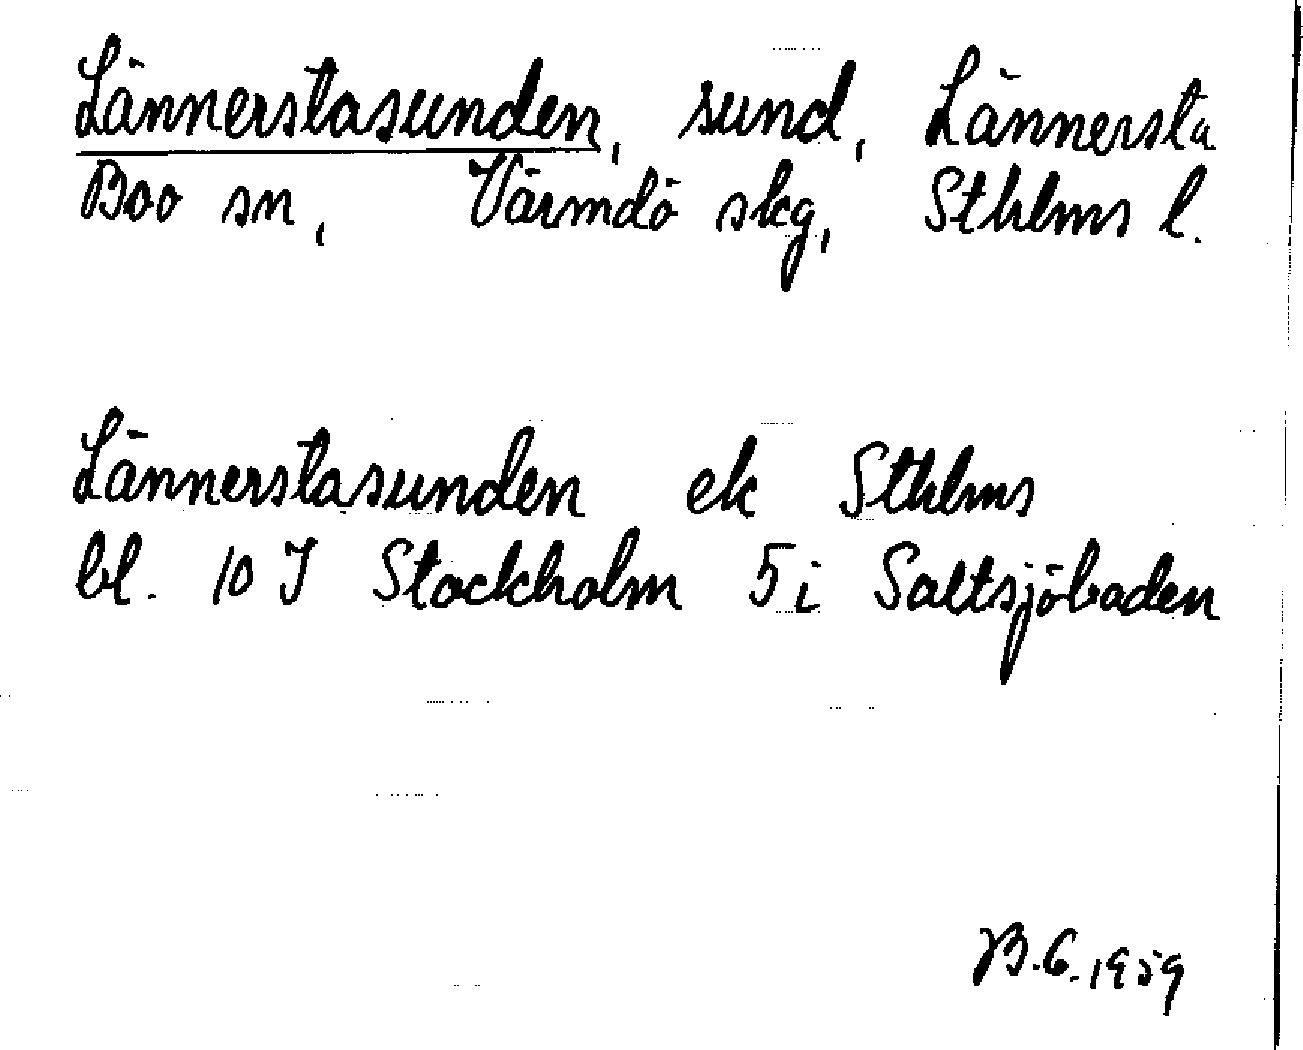 Lännerstasunden, sund, Lännersta
Boo sn, Värmdö skg, Sthlms l.
Lännerstasunden ek Sthlms
bl. 10 I Stockholm 5 i Saltsjöbaden
B.G. 1959